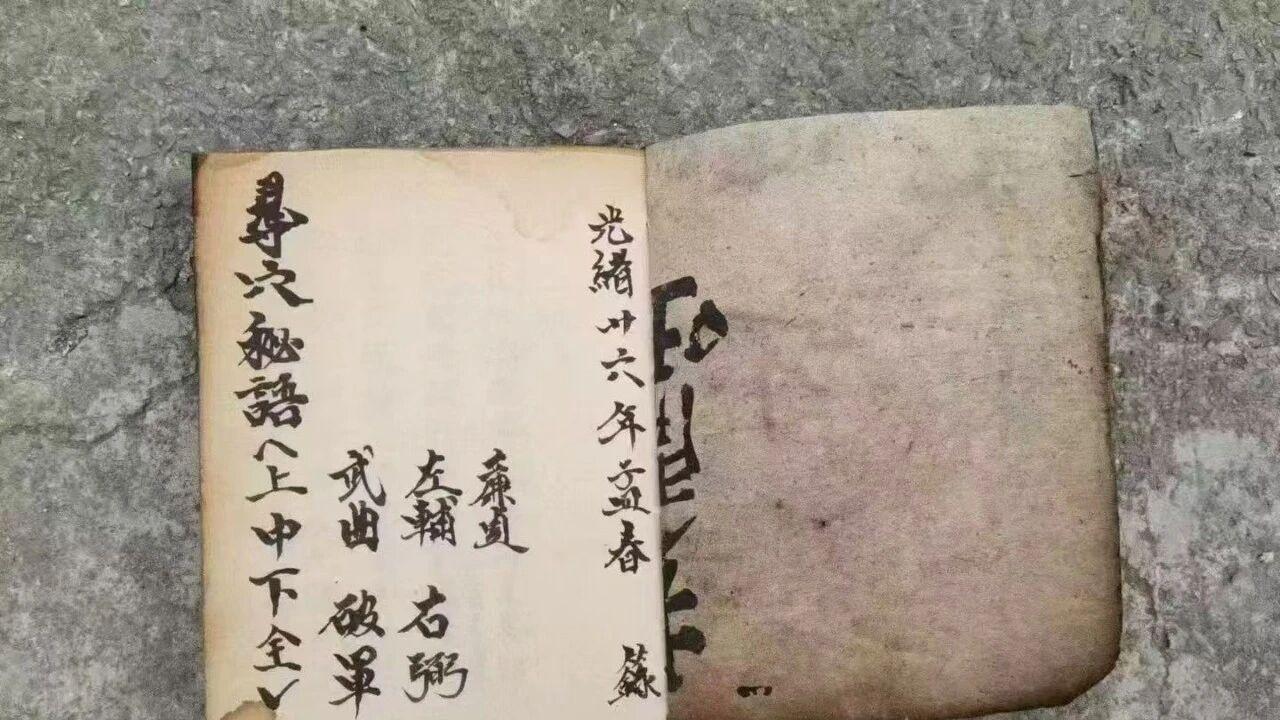 光緒卄六年孟春 錄
廉貞
左輔 右弼
武曲 破軍
尋穴秘語〈上中下全〉